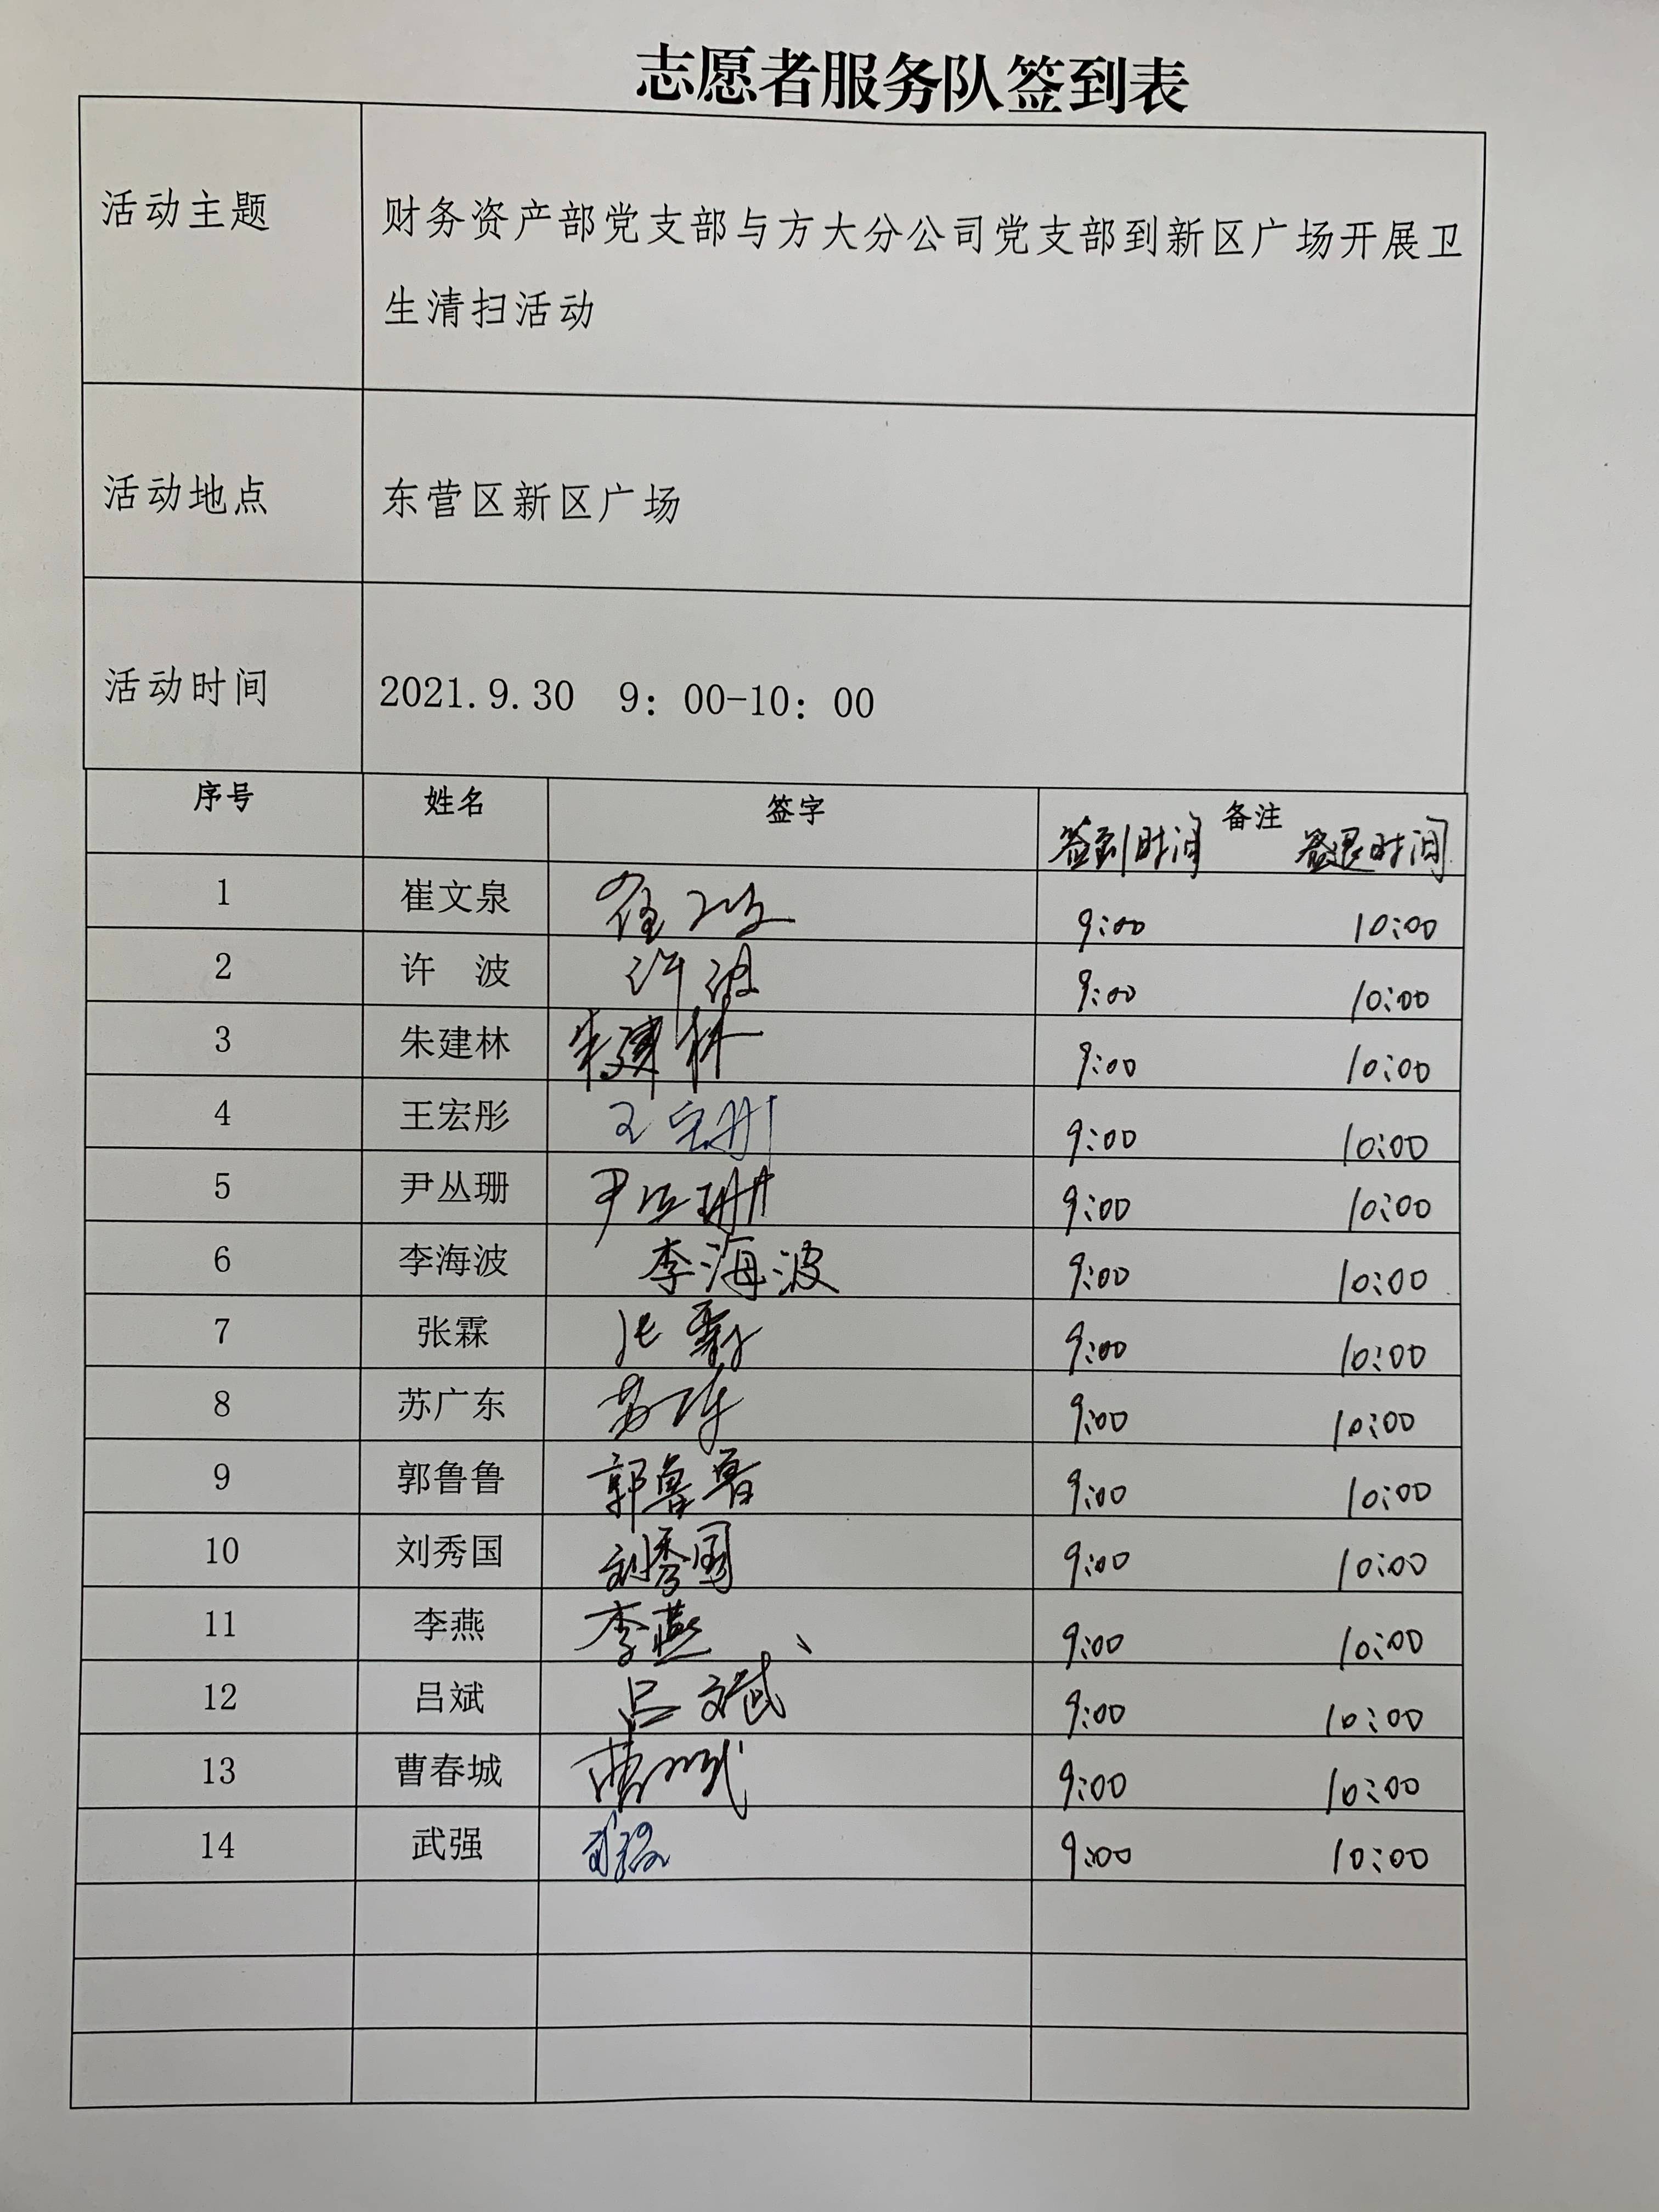 志愿者服务队签到表
活动主题
财务资产部党支部与方大分公司党支部到新区广场开展卫
生清扫活动
活动地点 东营区新区广场
活动时间 2021.9.30 9：00-10：00
序号 姓名 签字 备注
签到时间 签退时间
1 崔文泉 9:00 10:00
2 许 波 许波 9:00 10:00
3 朱建林 朱建林 9:00 10:00
4 王宏彤 王宏彤 9:00 10:00
5 尹丛珊 尹丛珊 9:00 10:00
6 李海波 李海波 9:00 10:00
7 张霖 张霖 9:00 10:00
8 苏广东 苏广东 9:00 10:00
9 郭鲁鲁 郭鲁鲁 9:00 10:00
10 刘秀国 刘秀国 9:00 10:00
11 李燕 李燕 9:00 10:00
12 吕斌 吕斌 9:00 10:00
13 曹春城 曹春城 9:00 10:00
14 武强 武强 9:00 10:00